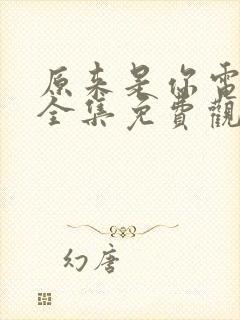 原来是你電
全集免費觀
幻唐